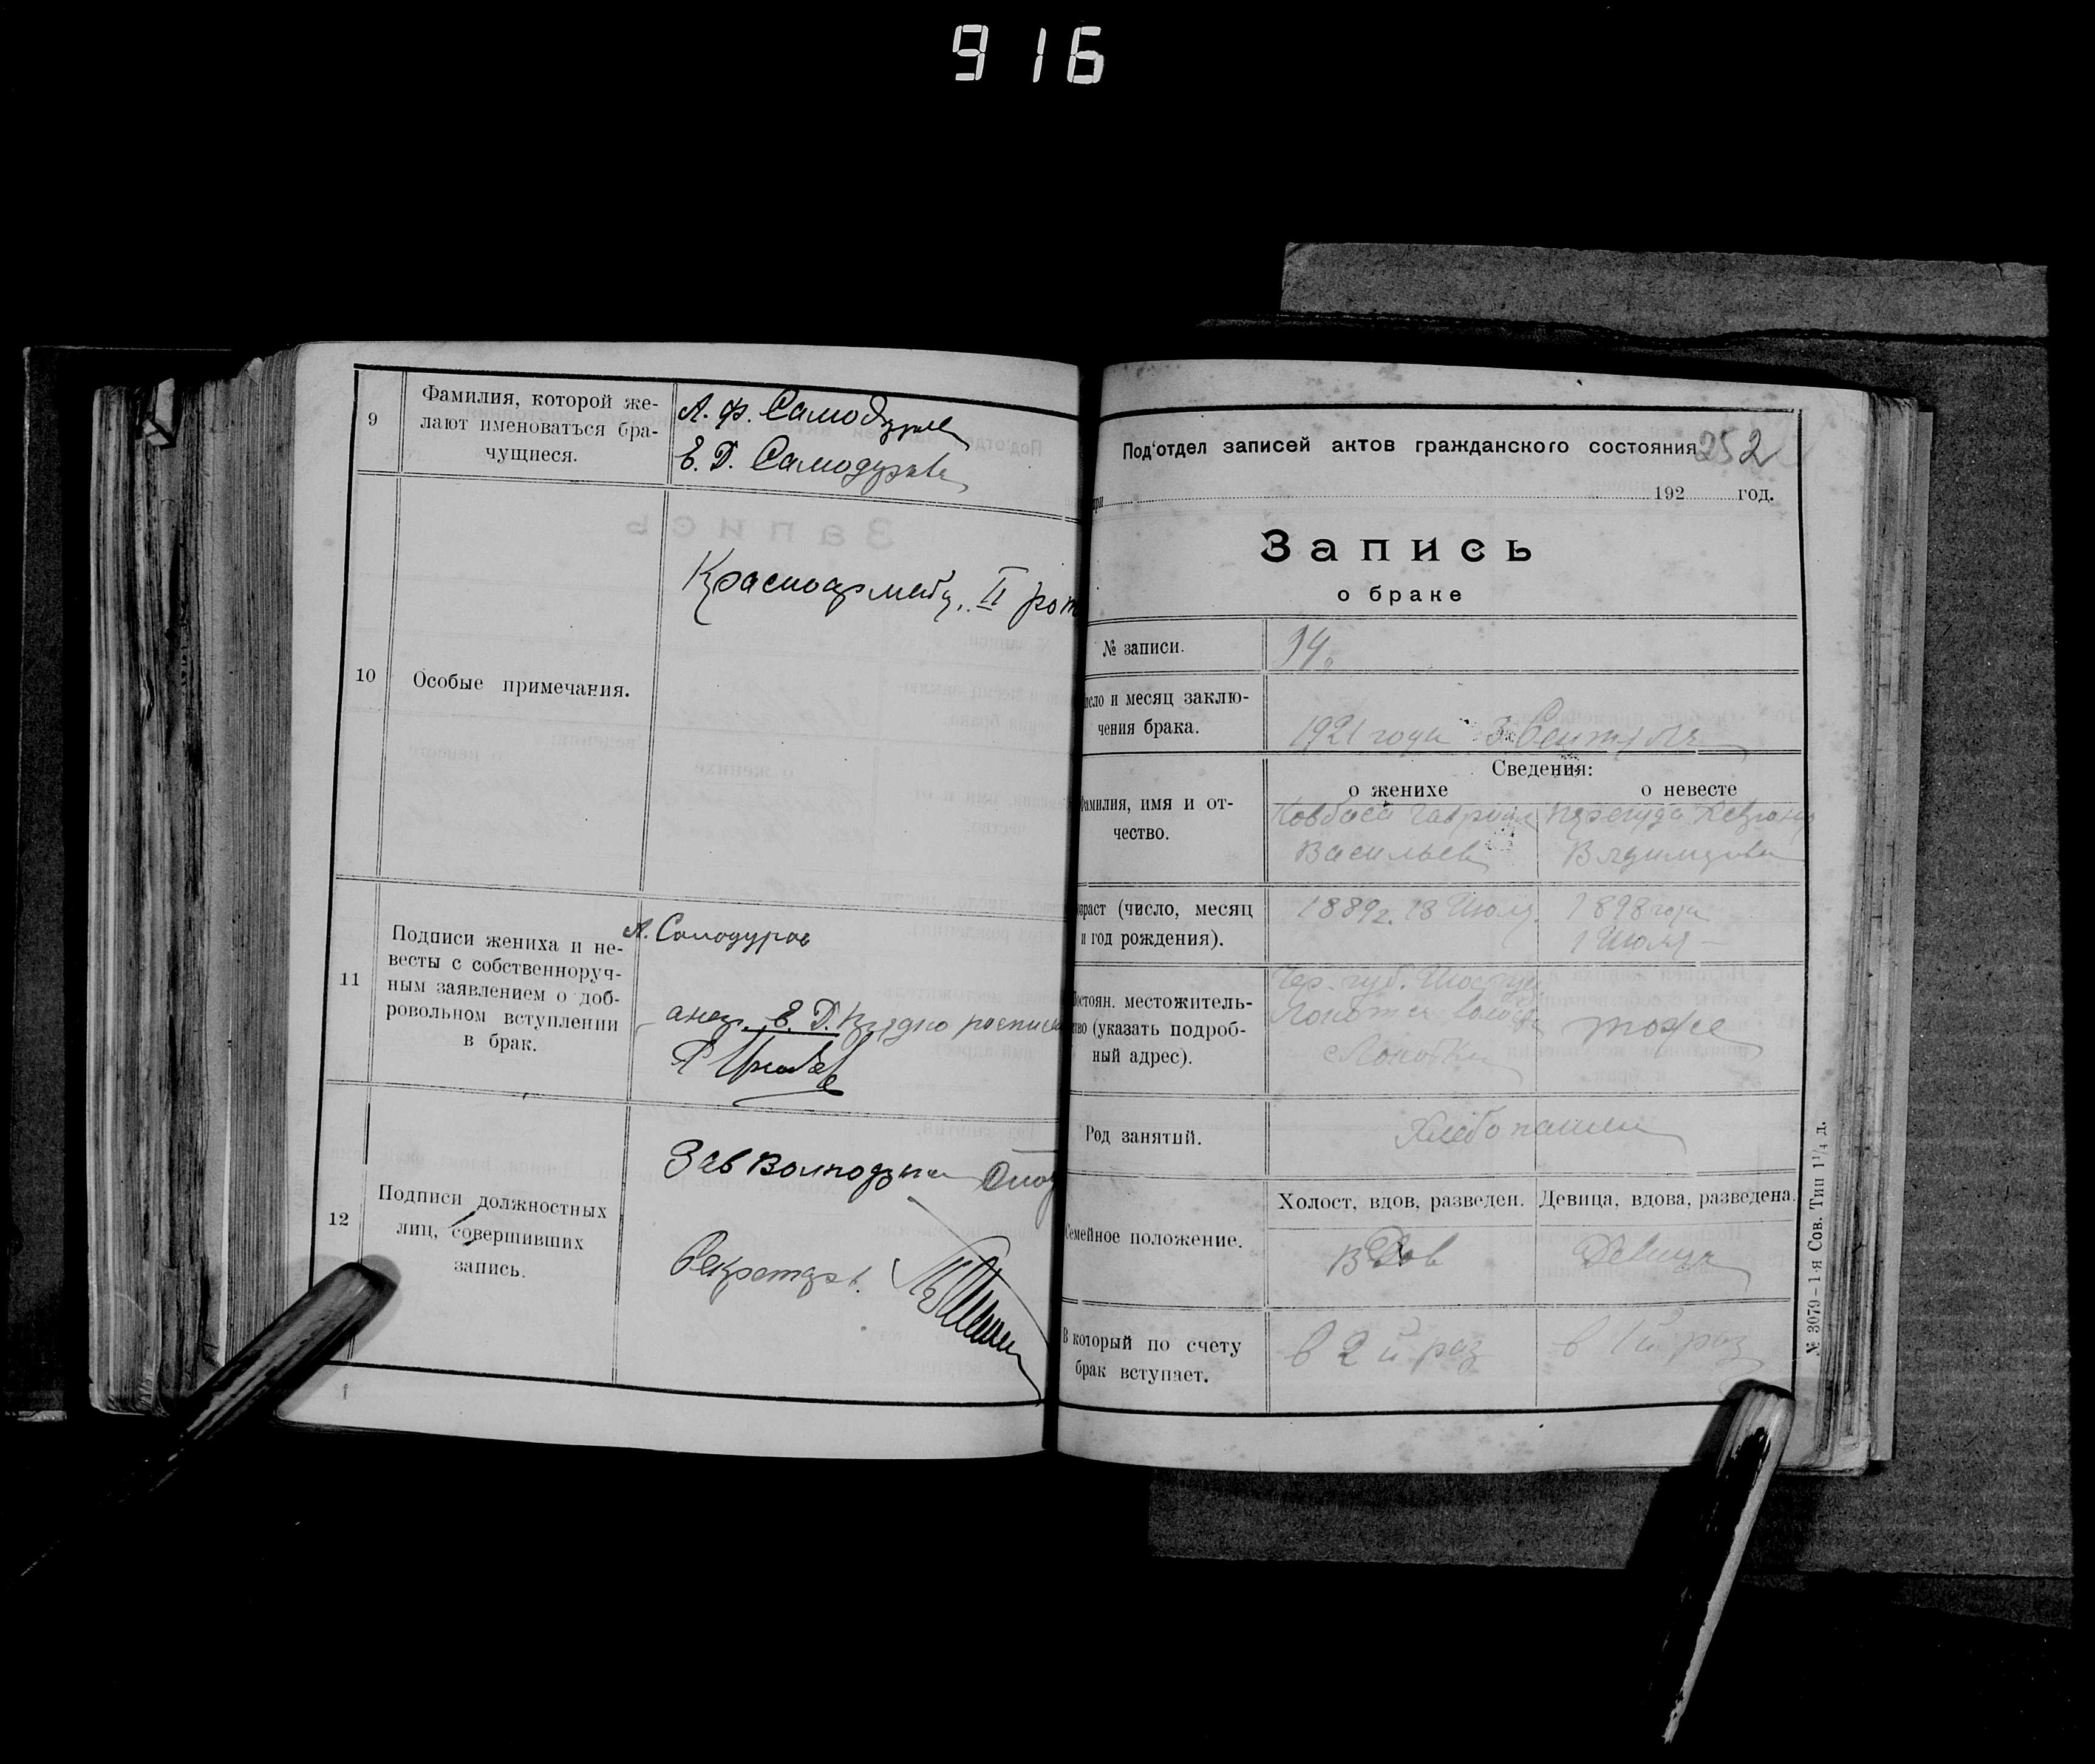 916
9
Фамилия, которой же-
лают именоваться бра-
чущиеся.
А. Ф. Самодуров
Е. Д. Самодурова
10
Особые примечания.
Красноармеец II рот
11
Подписи жениха и не-
весты с собственноруч-
ным заявлением о доб-
ровольном вступлении
в брак.
А. Самодуров
Е. Д.
12
Подписи должностных
лиц, совершивших
запись.
Зав
Секретарь
1
Под'отдел записей актов гражданского состояния 252
при 192 год.
Запись
о браке
№ записи.
14.
число и месяц заклю-
чения брака.
1921 года 3 Сентября
Сведения:
о женихе о невесте
Фамилия, имя и от-
чество.
Ковбаса Гавриил
Васильев
Перегуда
Возраст (число, месяц
и год рождения).
1889 г. 13 Июля
1898 года
1 Июля
Постоян. местожитель-
ство (указать подроб-
ный адрес).
Чер. губ.
тоже
Род занятий.
Хлебопашец
Семейное положение.
Холост, вдов, разведен. Девица, вдова, разведена.
Вдов
Девица
В который по счету
брак вступает.
в 2й раз
в 1й раз
№ 3079 – 1-я Сов. Тип 1¹/₄ д.